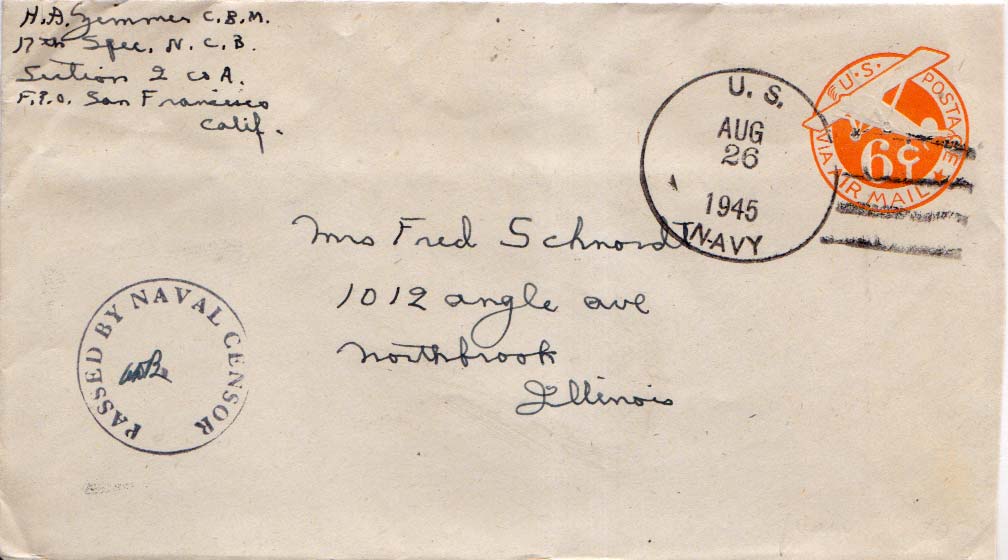 H.A. Zimmer C.B.M.
17th Spec. N.C.B.
Section 2 Co A.
F.P.O. San Francisco
Calif.
U.S.
AUG
26
1945
NAVY
U.S. POSTAGE
6¢
VIA AIR MAIL
Mrs Fred Schnordt
1012 angle ave
Northbrook
Illinois
PASSED BY NAVAL CENSOR